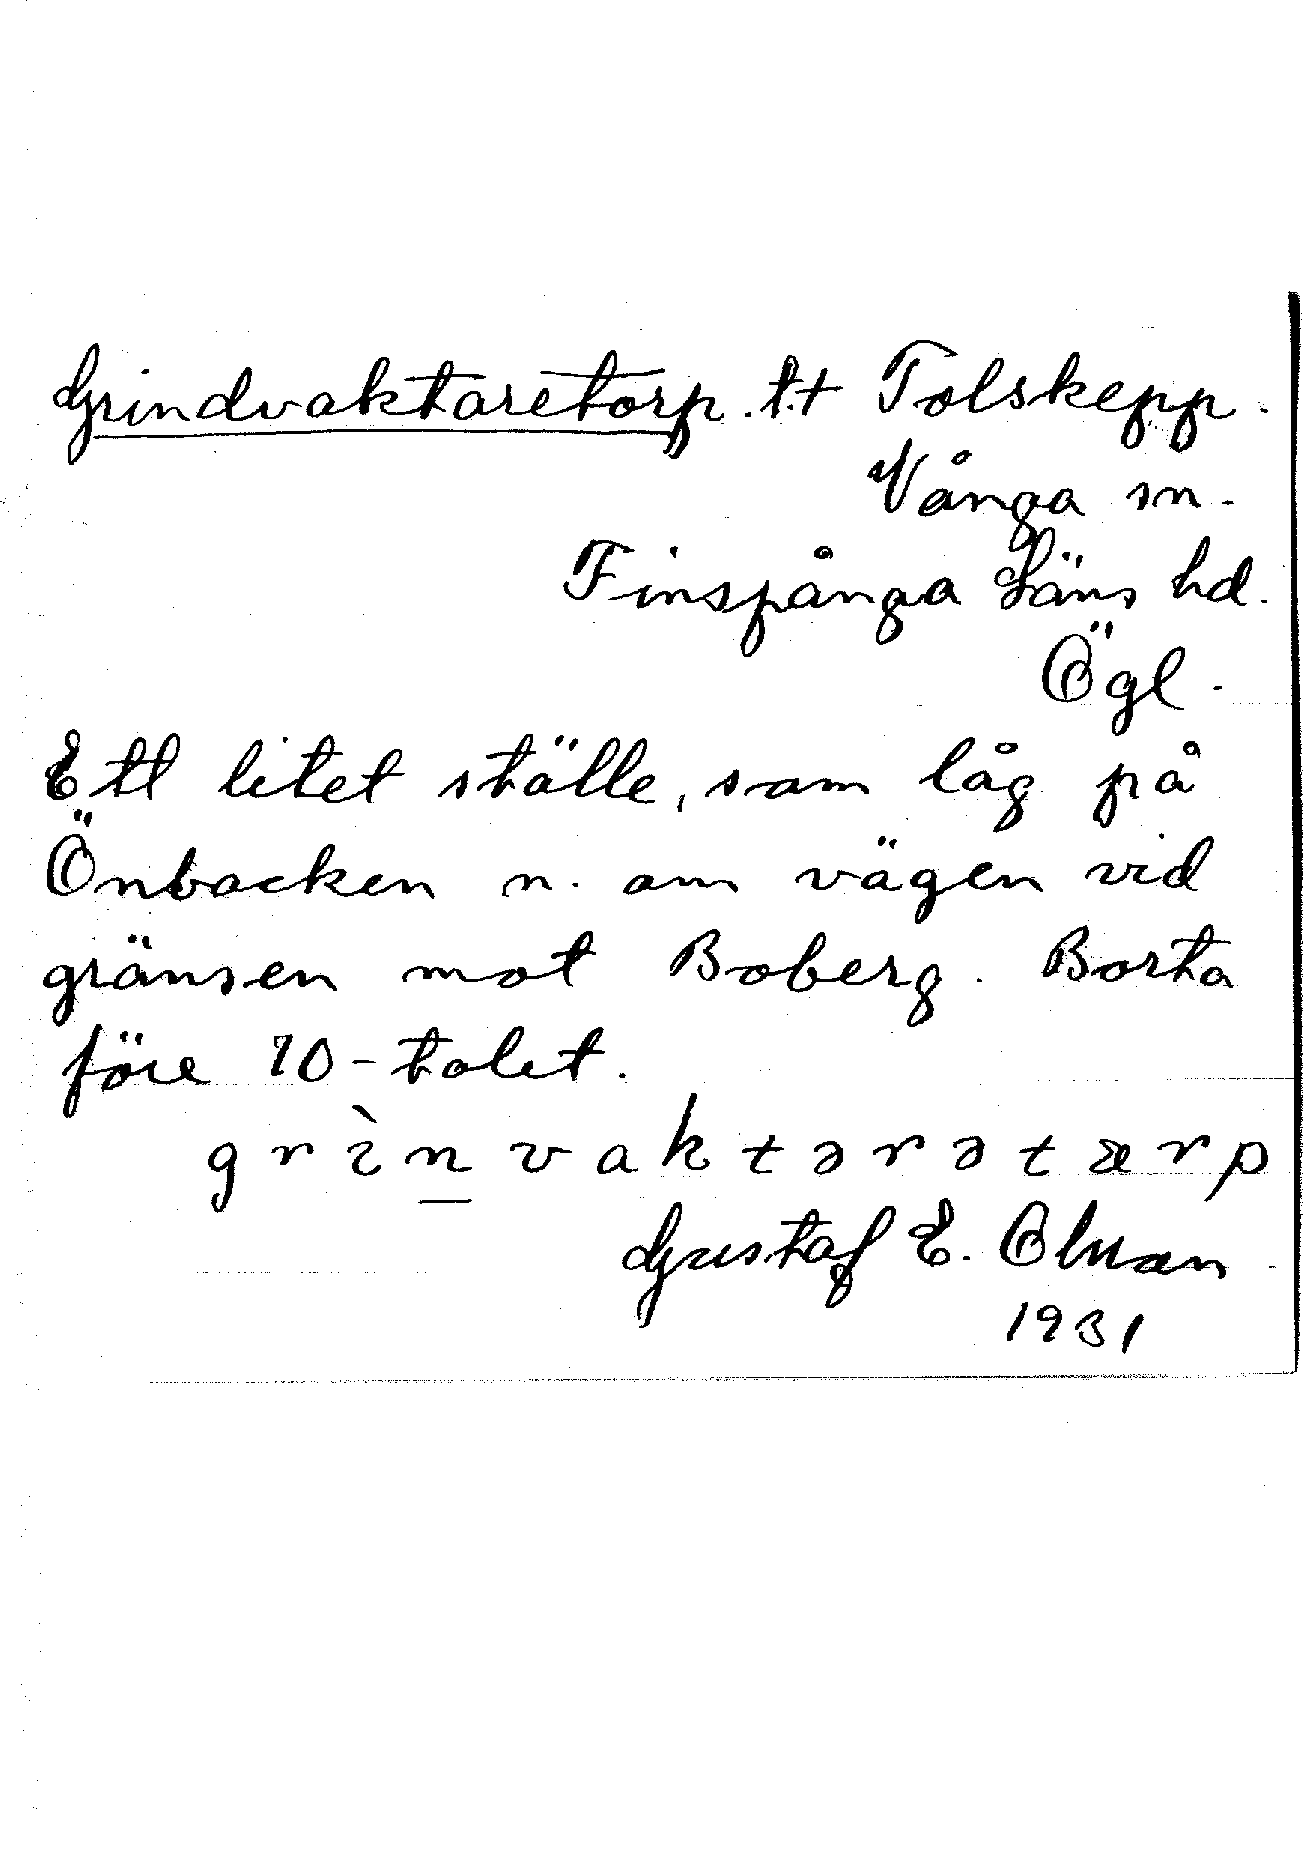 Grindvaktaretorp. t.t Tolskepp.
Vånga sn.
Finspånga Läns hd.
Ögl.
Ett litet ställe, som låg på
Önbacken n. om vägen vid
gränsen mot Boberg. Borta
före 70-talet.
grìn̲vaktərətærp
Gustaf E. Olman
1931